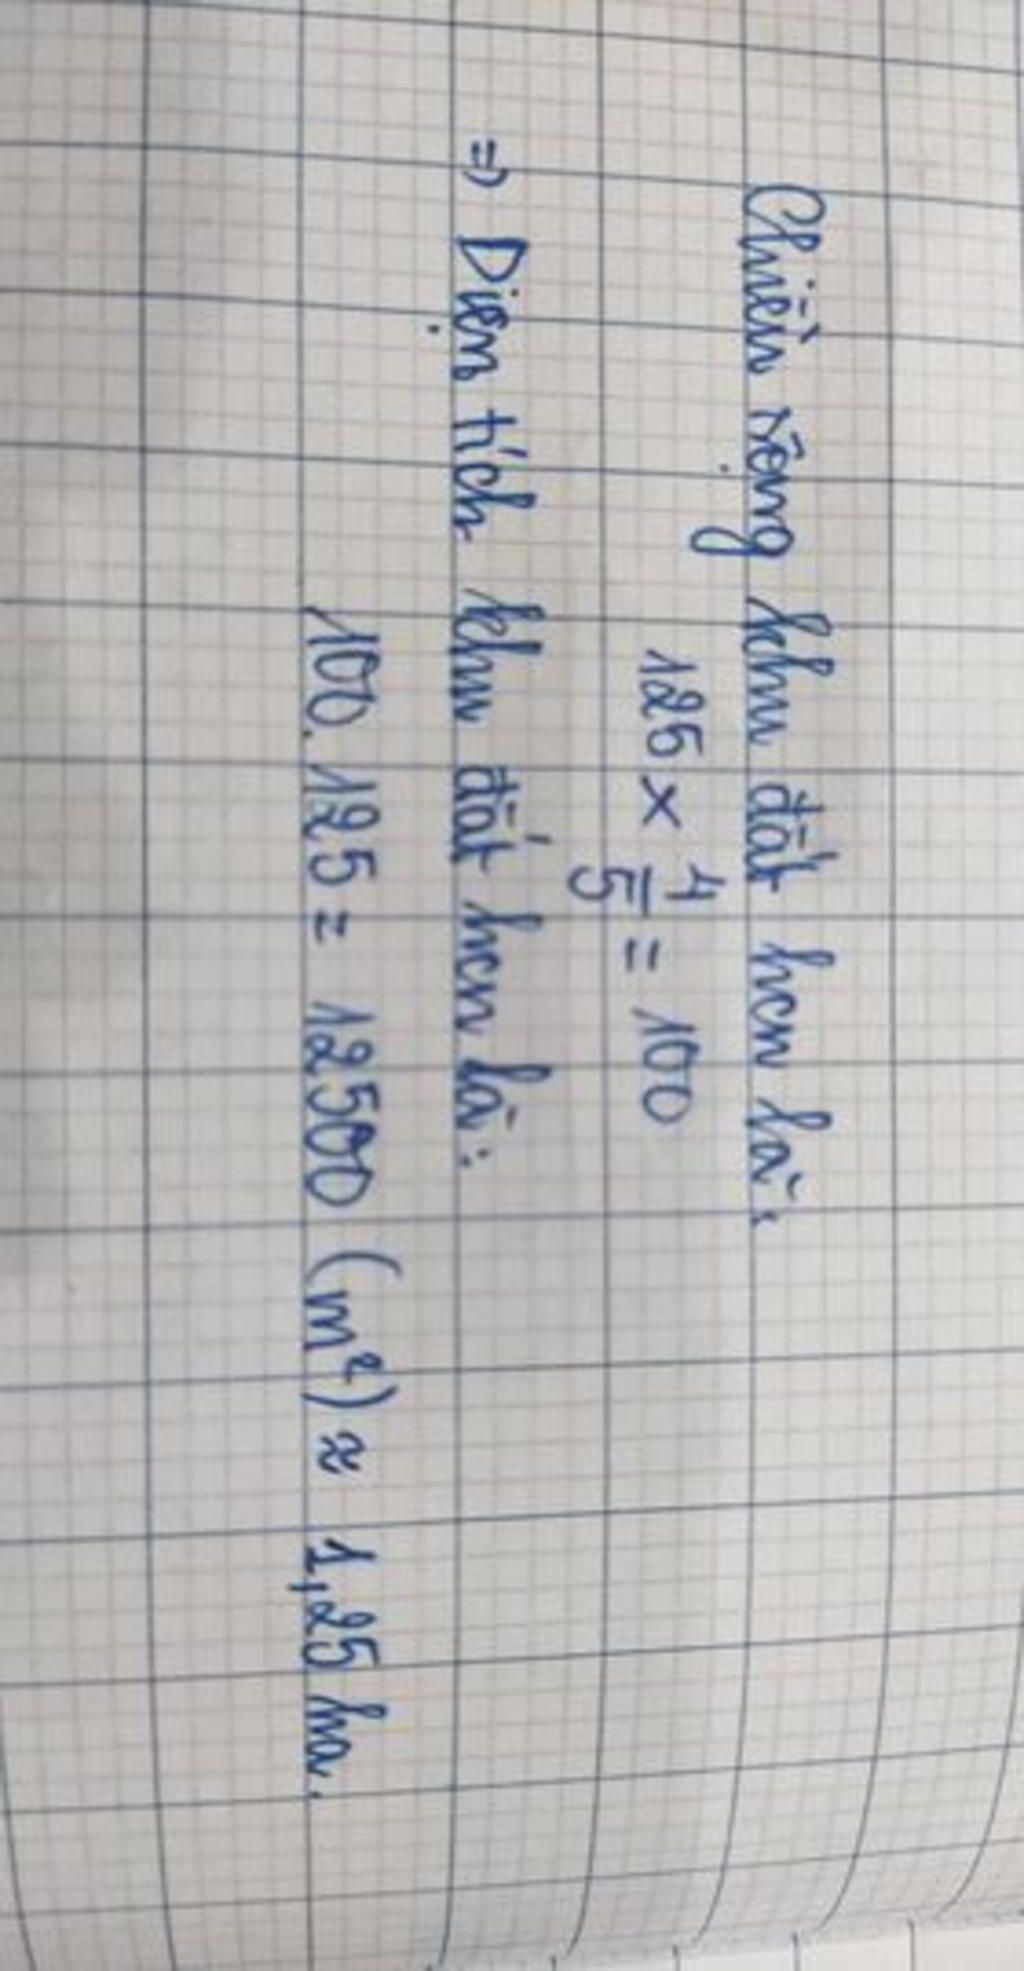 Chiều rộng khu đất hcn là:
125 × 4/5 = 100
=> Diện tích khu đất hcn là:
100.125 = 12500 (m²) ≈ 1,25 ha.